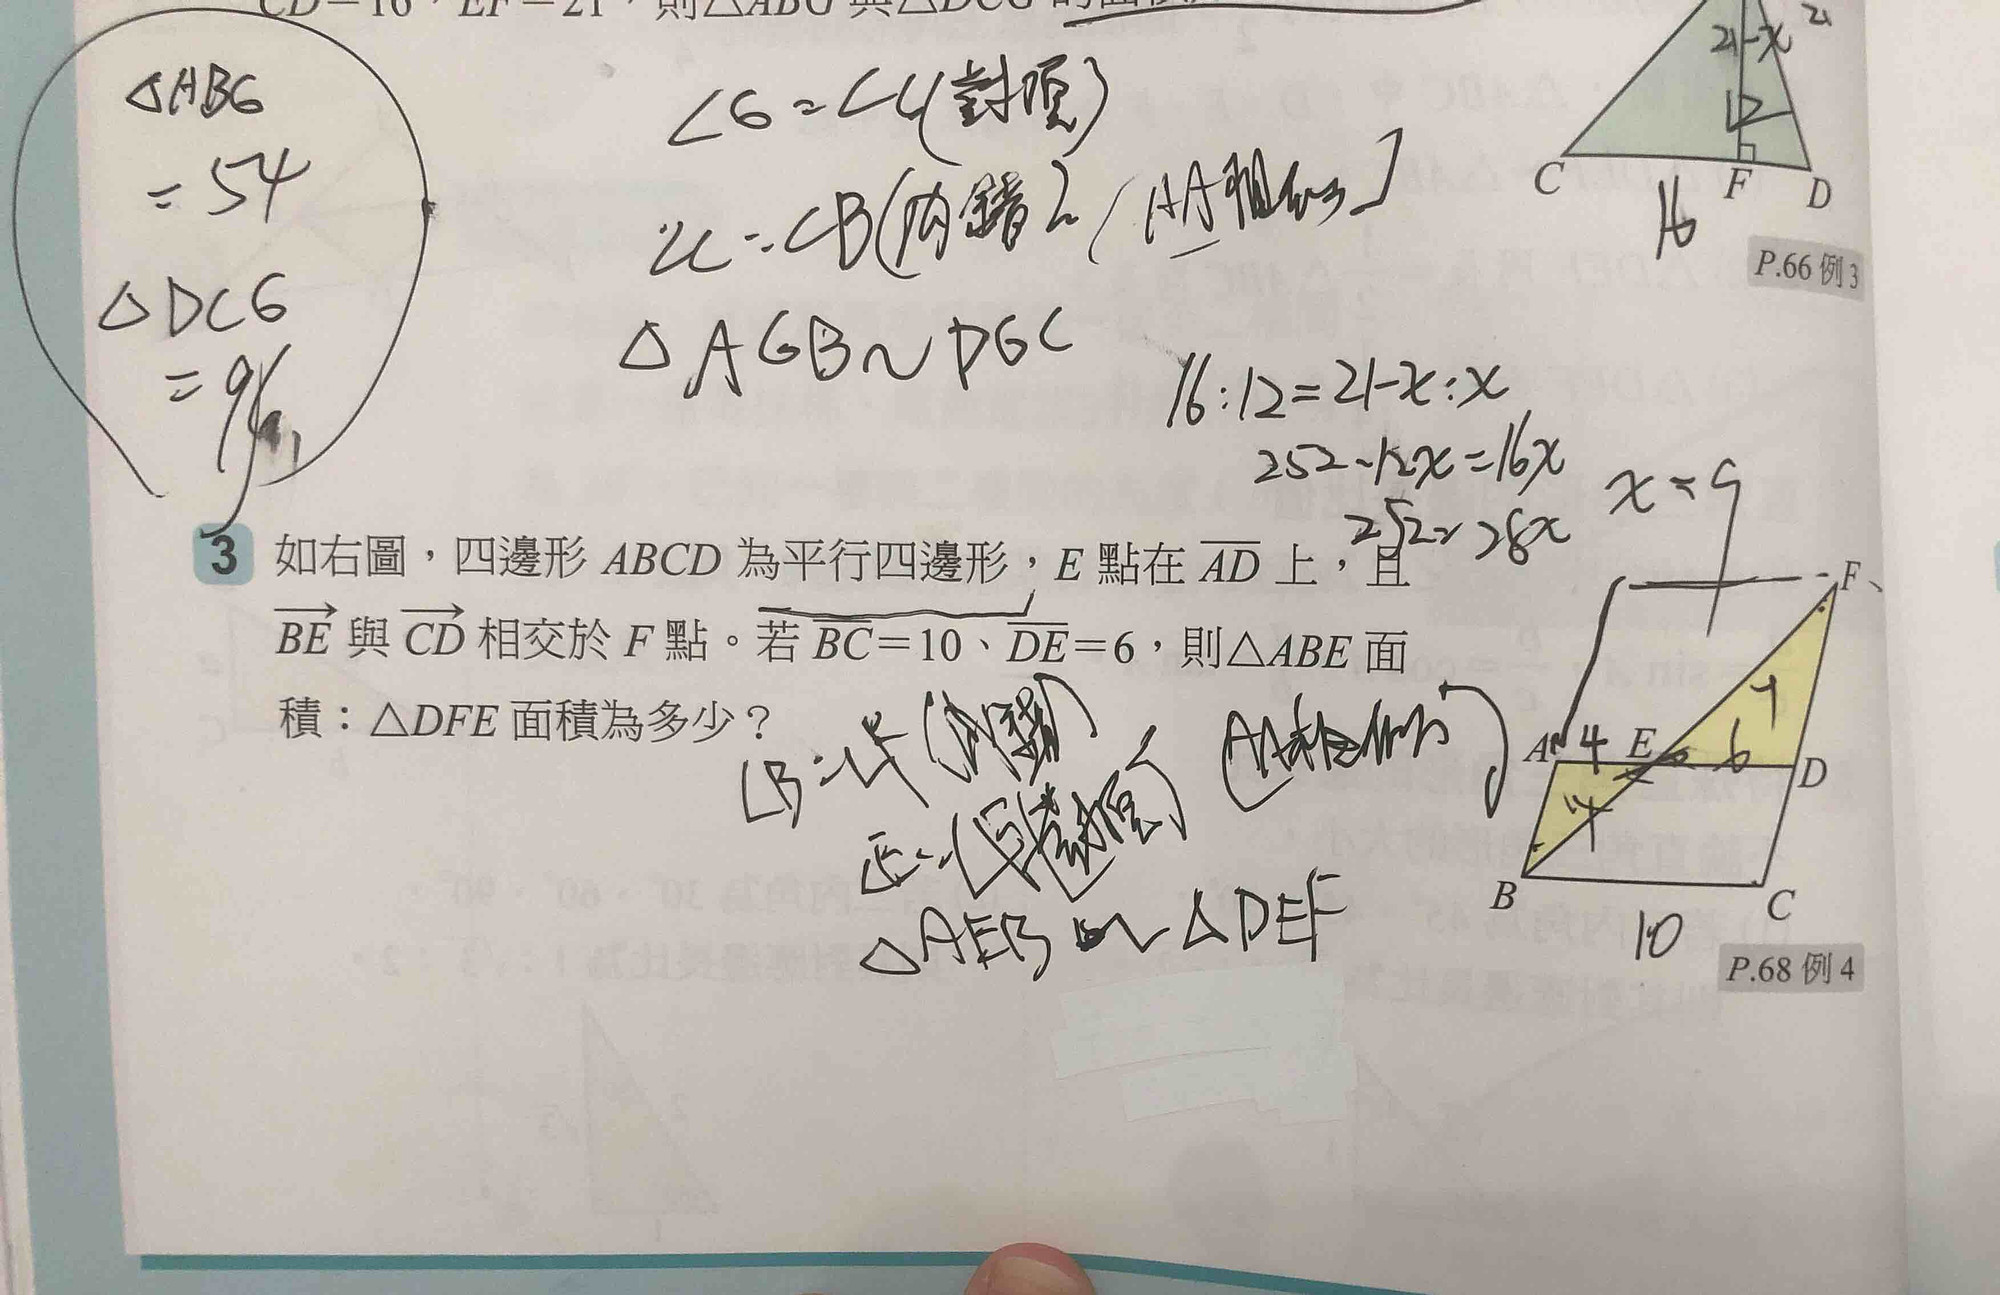 CD=16，EF=21，則△ABG 與△DCG 的面積
△ABG
=54
△DCG
=96
∠G=∠G(對頂)
∠C=∠B(內錯) (AA相似)
△AGB~DGC
16:12=21-x:x
252-12x=16x
252=28x
x=9
21
21-x
12
C F D
16
P.66 例3
3 如右圖，四邊形 ABCD 為平行四邊形，E 點在 AD 上，且
BE 與 CD 相交於 F 點。若 BC=10、DE=6，則△ABE 面
積：△DFE 面積為多少？
∠B=∠F(內錯)
∠E=∠E(對頂) (AA相似)
△AEB~△DEF
F
A 4 E 6 D
B C
10
P.68 例4